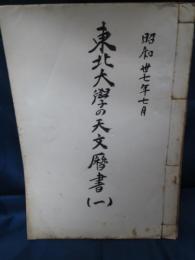 昭和卅七年七月
東北大學の天文暦書
(一)